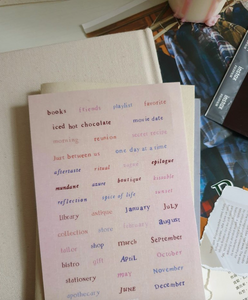 books friends playlist favorite
iced hot chocolate movie date
morning reunion
just between us one day at a time
aftertaste ritual epilogue
mundane azure boutique lovable
reflection spice of life sunset
library antique January July
collection February August
teller shop March September
bistro gift April October
stationery May November
apothecary June December